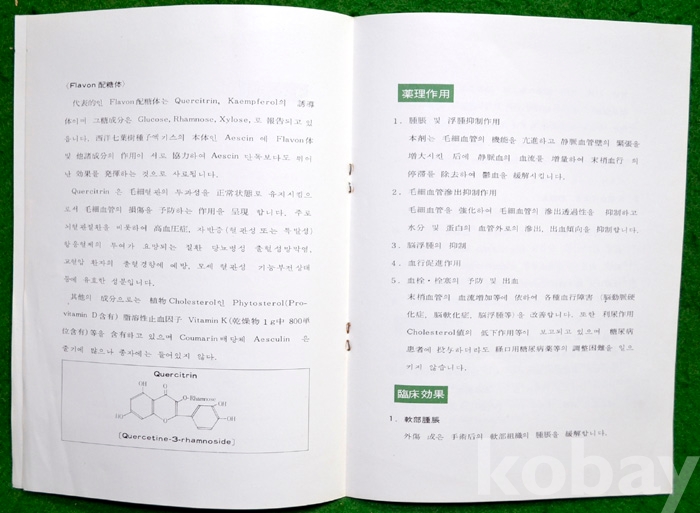 〈Flavon 配糖体〉
代表的인 Flavon配糖体는 Quercitrin, Kaempferol의 誘導
体이며 그糖成分은 Glucose, Rhamnose, Xylose, 로 報告되고 있
읍니다. 西洋七葉樹種子엑기스의 本体인 Aescin 에 Flavon体
및 他諸成分의 作用이 서로 協力하여 Aescin 단독보다도 뛰어
난 効果를 発揮하는 것으로 사료됩니다.
Quercitrin 은 毛細혈관의 투과성을 正常狀態로 유지시킴으
로서 毛細血管의 損傷을 予防하는 作用을 呈現 합니다. 주로
히 高血圧症, 자반증(혈관성 또는 특발성)
투여가 요망되는 질환 당뇨병성 출혈성망막염,
환자의 출혈경향에 예방, 모세 혈관성 기능부전상태
등에 유효한 성분입니다.
其他의 成分으로는 植物Cholesterol인 Phytosterol(Pro-
vitamin D含有) 脂溶性止血因子 Vitamin K(乾燥物 1g中 800単
位含有)等을 含有하고 있으며 Coumarin배당체 Aesculin 은
줄기에 많으나 종자에는 들어있지 않다.
Quercitrin
OH
O
O-Rhamnose
OH
HO
O
OH
[Quercetine-3-rhamnoside]
薬理作用
1. 腫脹 및 浮腫抑制作用
本剤는 毛細血管의 機能을 亢進하고 静脈血管壁의 緊張을
増大시킨 后에 静脈血의 血流을 增量하여 末梢血行 의
停滯을 除去하여 鬱血을 緩解시킵니다.
2. 毛細血管滲出抑制作用
毛細血管을 強化하여 毛細血管의 滲出透過性을 抑制하고
水分 및 蛋白의 血管外로의 滲出, 出血傾向을 抑制합니다.
3. 脳浮腫의 抑制
4. 血行促進作用
5. 血栓・栓塞의 予防 및 出血
末梢血管의 血流增加等에 依하여 各種血行障害 (脳動脈硬
化症, 脳軟化症, 脳浮腫等)을 改善합니다. 또한 利尿作用
Cholesterol値의 低下作用等이 보고되고 있으며 糖尿病
患者에 投与하더라도 経口用糖尿病薬等의 調整困難을 일으
키지 않습니다.
臨床効果
1. 軟部腫脹
外傷 或은 手術后의 軟部組織의 腫脹을 緩解합니다.
kobay